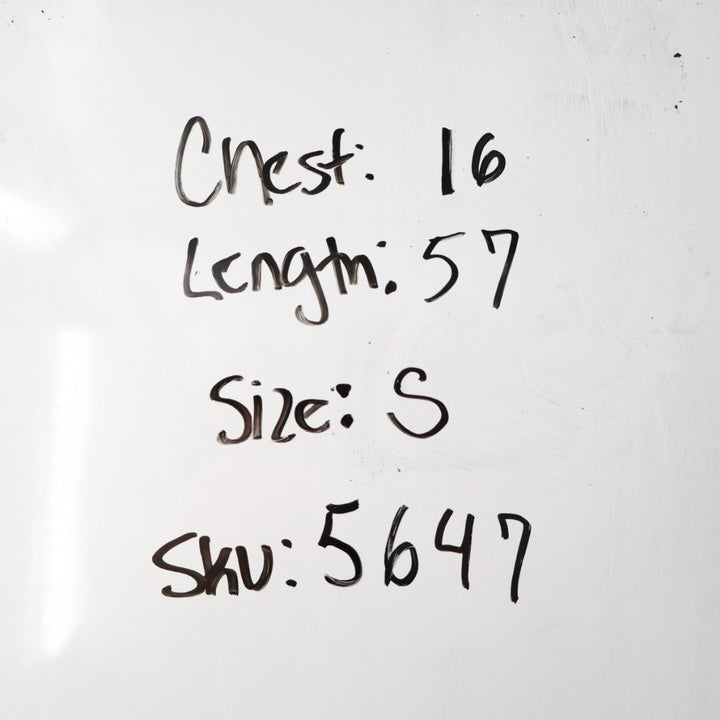 Chest: 16
Length: 57
Size: S
Sku: 5647